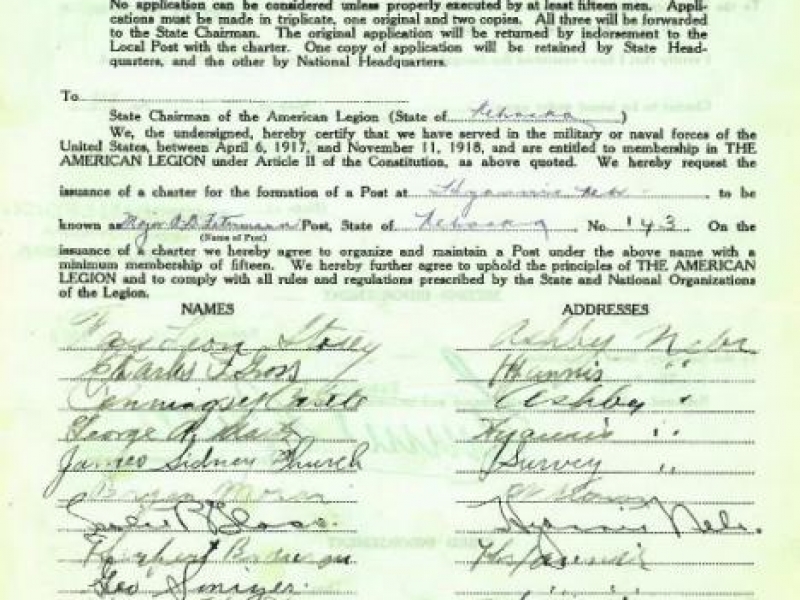 No application can be considered unless properly executed by at least fifteen men. Appli-
cations must be made in triplicate, one original and two copies. All three will be forwarded
to the State Chairman. The original application will be returned by indorsement to the
Local Post with the charter. One copy of application will be retained by State Head-
quarters, and the other by National Headquarters.
To
State Chairman of the American Legion (State of Nebraska)
We, the undersigned, hereby certify that we have served in the military or naval forces of the
United States, between April 6, 1917, and November 11, 1918, and are entitled to membership in THE
AMERICAN LEGION under Article II of the Constitution, as above quoted. We hereby request the
issuance of a charter for the formation of a Post at Hyannis Neb. to be
known as Major Post, State of Nebraska, No. 143 On the
(Name of Post)
issuance of a charter we hereby agree to organize and maintain a Post under the above name with a
minimum membership of fifteen. We hereby further agree to uphold the principles of THE AMERICAN
LEGION and to comply with all rules and regulations prescribed by the State and National Organizations
of the Legion.
NAMES ADDRESSES
Leon Ashby Nebr
Charles F. Gross Hyannis "
Ashby "
George Hyannis "
James Sidney Church Survey "
Moran
Hyannis Nebr.
Geo " "